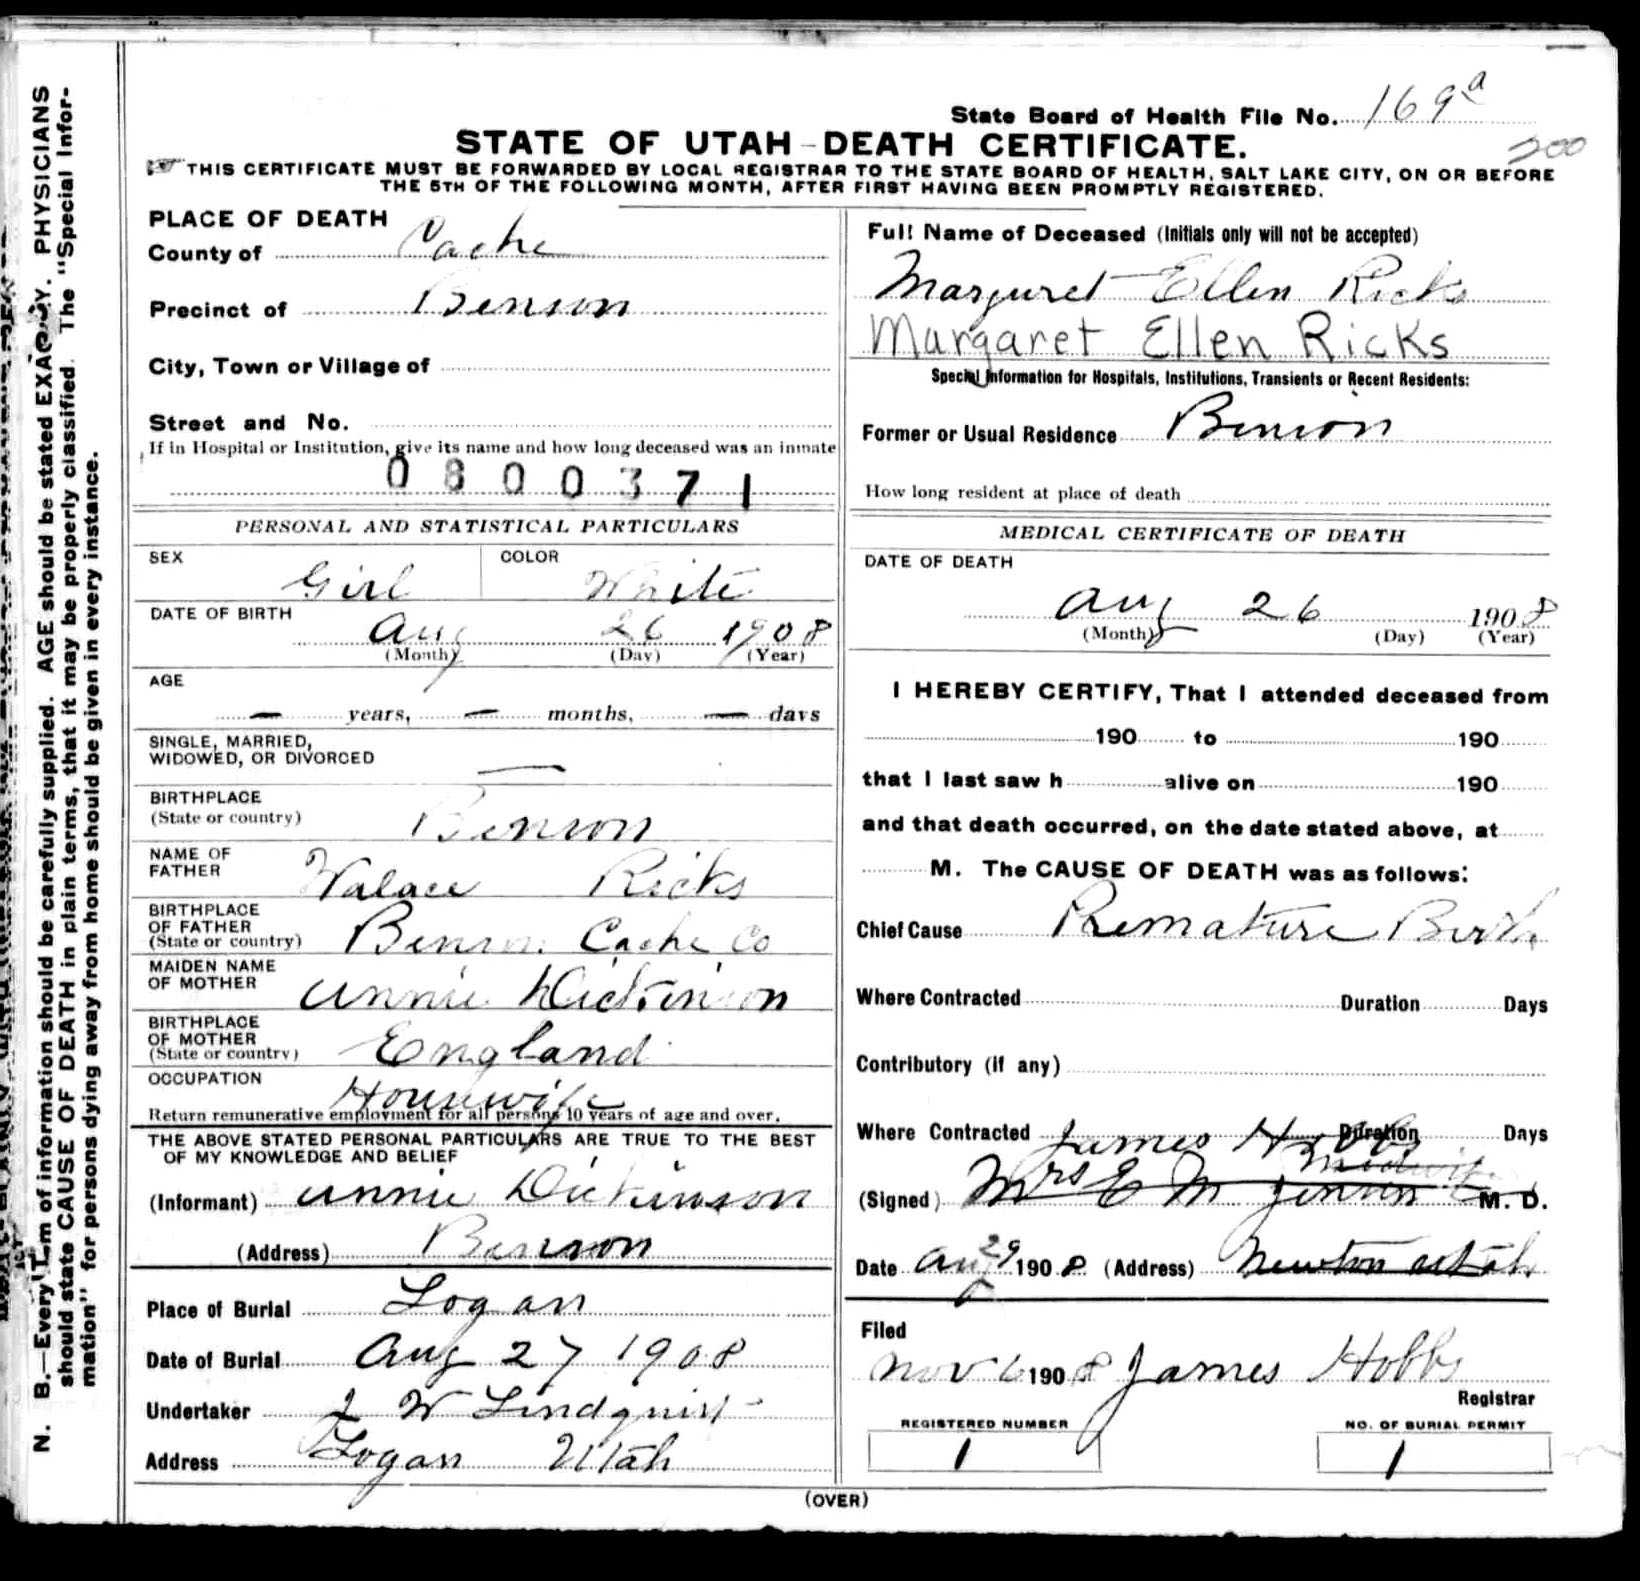 State Board of Health File No. 169a
STATE OF UTAH-DEATH CERTIFICATE.
200
THIS CERTIFICATE MUST BE FORWARDED BY LOCAL REGISTRAR TO THE STATE BOARD OF HEALTH, SALT LAKE CITY, ON OR BEFORE
THE 5TH OF THE FOLLOWING MONTH, AFTER FIRST HAVING BEEN PROMPTLY REGISTERED.
N. B.—Every item of information should be carefully supplied. AGE should be stated EXACTLY. PHYSICIANS
should state CAUSE OF DEATH in plain terms, that it may be properly classified. The "Special Infor-
mation" for persons dying away from home should be given in every instance.
PLACE OF DEATH
County of Cache
Precinct of Benson
City, Town or Village of
Street and No.
If in Hospital or Institution, give its name and how long deceased was an inmate
0800371
PERSONAL AND STATISTICAL PARTICULARS
SEX Girl COLOR White
DATE OF BIRTH
Aug 26 1908
(Month) (Day) (Year)
AGE
— years, — months, — days
SINGLE, MARRIED,
WIDOWED, OR DIVORCED —
BIRTHPLACE
(State or country) Benson
NAME OF
FATHER Walace Ricks
BIRTHPLACE
OF FATHER
(State or country) Benson Cache Co
MAIDEN NAME
OF MOTHER Annie Dickinson
BIRTHPLACE
OF MOTHER
(State or country) England
OCCUPATION Housewife
Return remunerative employment for all persons 10 years of age and over.
THE ABOVE STATED PERSONAL PARTICULARS ARE TRUE TO THE BEST
OF MY KNOWLEDGE AND BELIEF
(Informant) Annie Dickinson
(Address) Benson
Place of Burial Logan
Date of Burial Aug 27 1908
Undertaker J W Lindquist
Address Logan Utah
Full Name of Deceased (Initials only will not be accepted)
Margaret Ellen Ricks
Margaret Ellen Ricks
Special Information for Hospitals, Institutions, Transients or Recent Residents:
Former or Usual Residence Benson
How long resident at place of death
MEDICAL CERTIFICATE OF DEATH
DATE OF DEATH
Aug 26 1908
(Month) (Day) (Year)
I HEREBY CERTIFY, That I attended deceased from
190 to 190
that I last saw h alive on 190
and that death occurred, on the date stated above, at
M. The CAUSE OF DEATH was as follows:
Chief Cause Premature Birth
Where Contracted Duration Days
Contributory (if any)
Where Contracted Duration Days
James Hobbs
midwife
(Signed) Mrs E M Jensen M. D.
Date Aug 29 1908 (Address) Newton Utah
Filed
Nov 6 1908 James Hobbs
Registrar
REGISTERED NUMBER
1
NO. OF BURIAL PERMIT
1
(OVER)